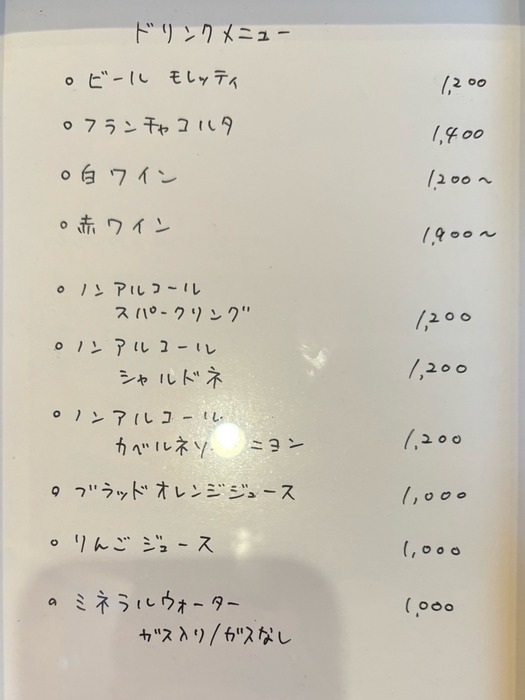 ドリンクメニュー
○ ビール モレッティ 1,200
○ フランチャコルタ 1,400
○ 白ワイン 1,200〜
○ 赤ワイン 1,900〜
○ ノンアルコール
スパークリング 1,200
○ ノンアルコール
シャルドネ 1,200
○ ノンアルコール
カベルネソ ニヨン 1,200
○ ブラッドオレンジジュース 1,000
○ りんごジュース 1,000
○ ミネラルウォーター 1,000
ガス入り/ガスなし